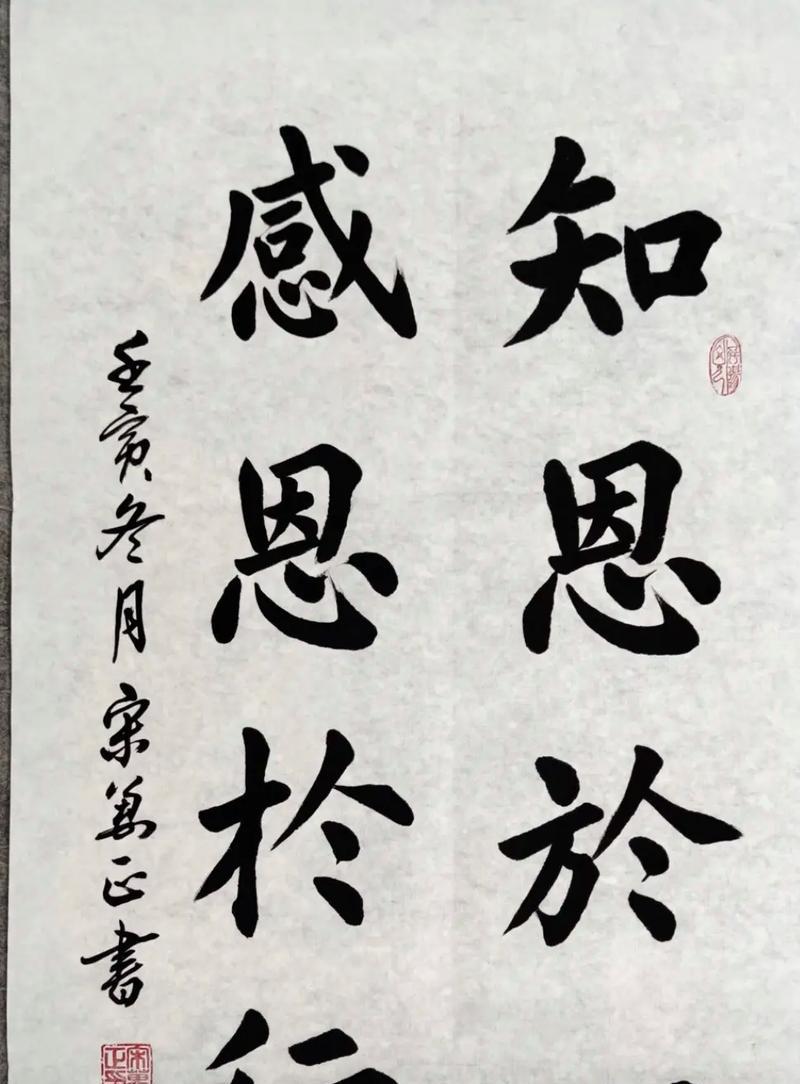 知恩於
感恩於行
壬寅冬月宋萬正書